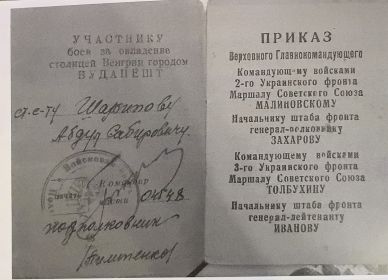 УЧАСТНИКУ
боев за овладение
столицей Венгрии городом
БУДАПЕШТ
ст. с-ту Шарипову
Абдул Сабировичу
Командир
части 04548
подполковник
ПРИКАЗ
Верховного Главнокомандующего
Командующему войсками
2-го Украинского фронта
Маршалу Советского Союза
МАЛИНОВСКОМУ
Начальнику штаба фронта
генерал-полковнику
ЗАХАРОВУ
Командующему войсками
3-го Украинского фронта
Маршалу Советского Союза
ТОЛБУХИНУ
Начальнику штаба фронта
генерал-лейтенанту
ИВАНОВУ